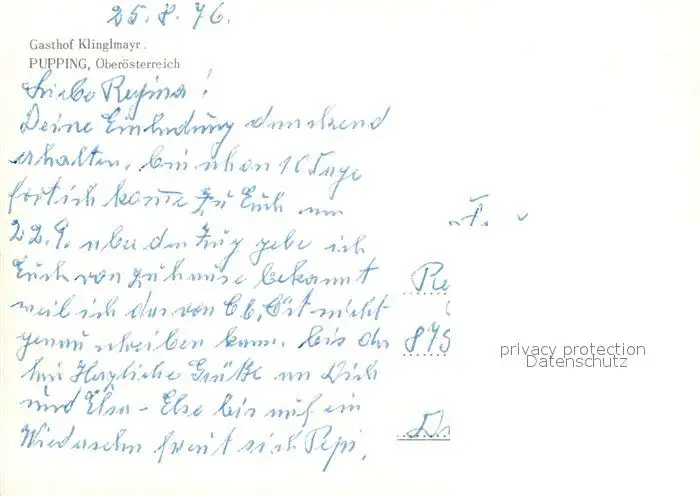 25.8.76.
Gasthof Klinglmayr.
PUPPING, Oberösterreich
Liebe Regina!
Deine Einladung dankend
erhalten, bin schon 16 Tage
fort ich komme zu Euch am
22.9. über den Zug gebe ich
Euch von zuhause bekannt
weil ich das von Ob. Öst nicht
genau schreiben kann. bis da
hin Herzliche Grüße an Dich
und Elsa - Else bis auf ein
Wiedersehn freut sich Pepi.
Re
875
privacy protection
Datenschutz